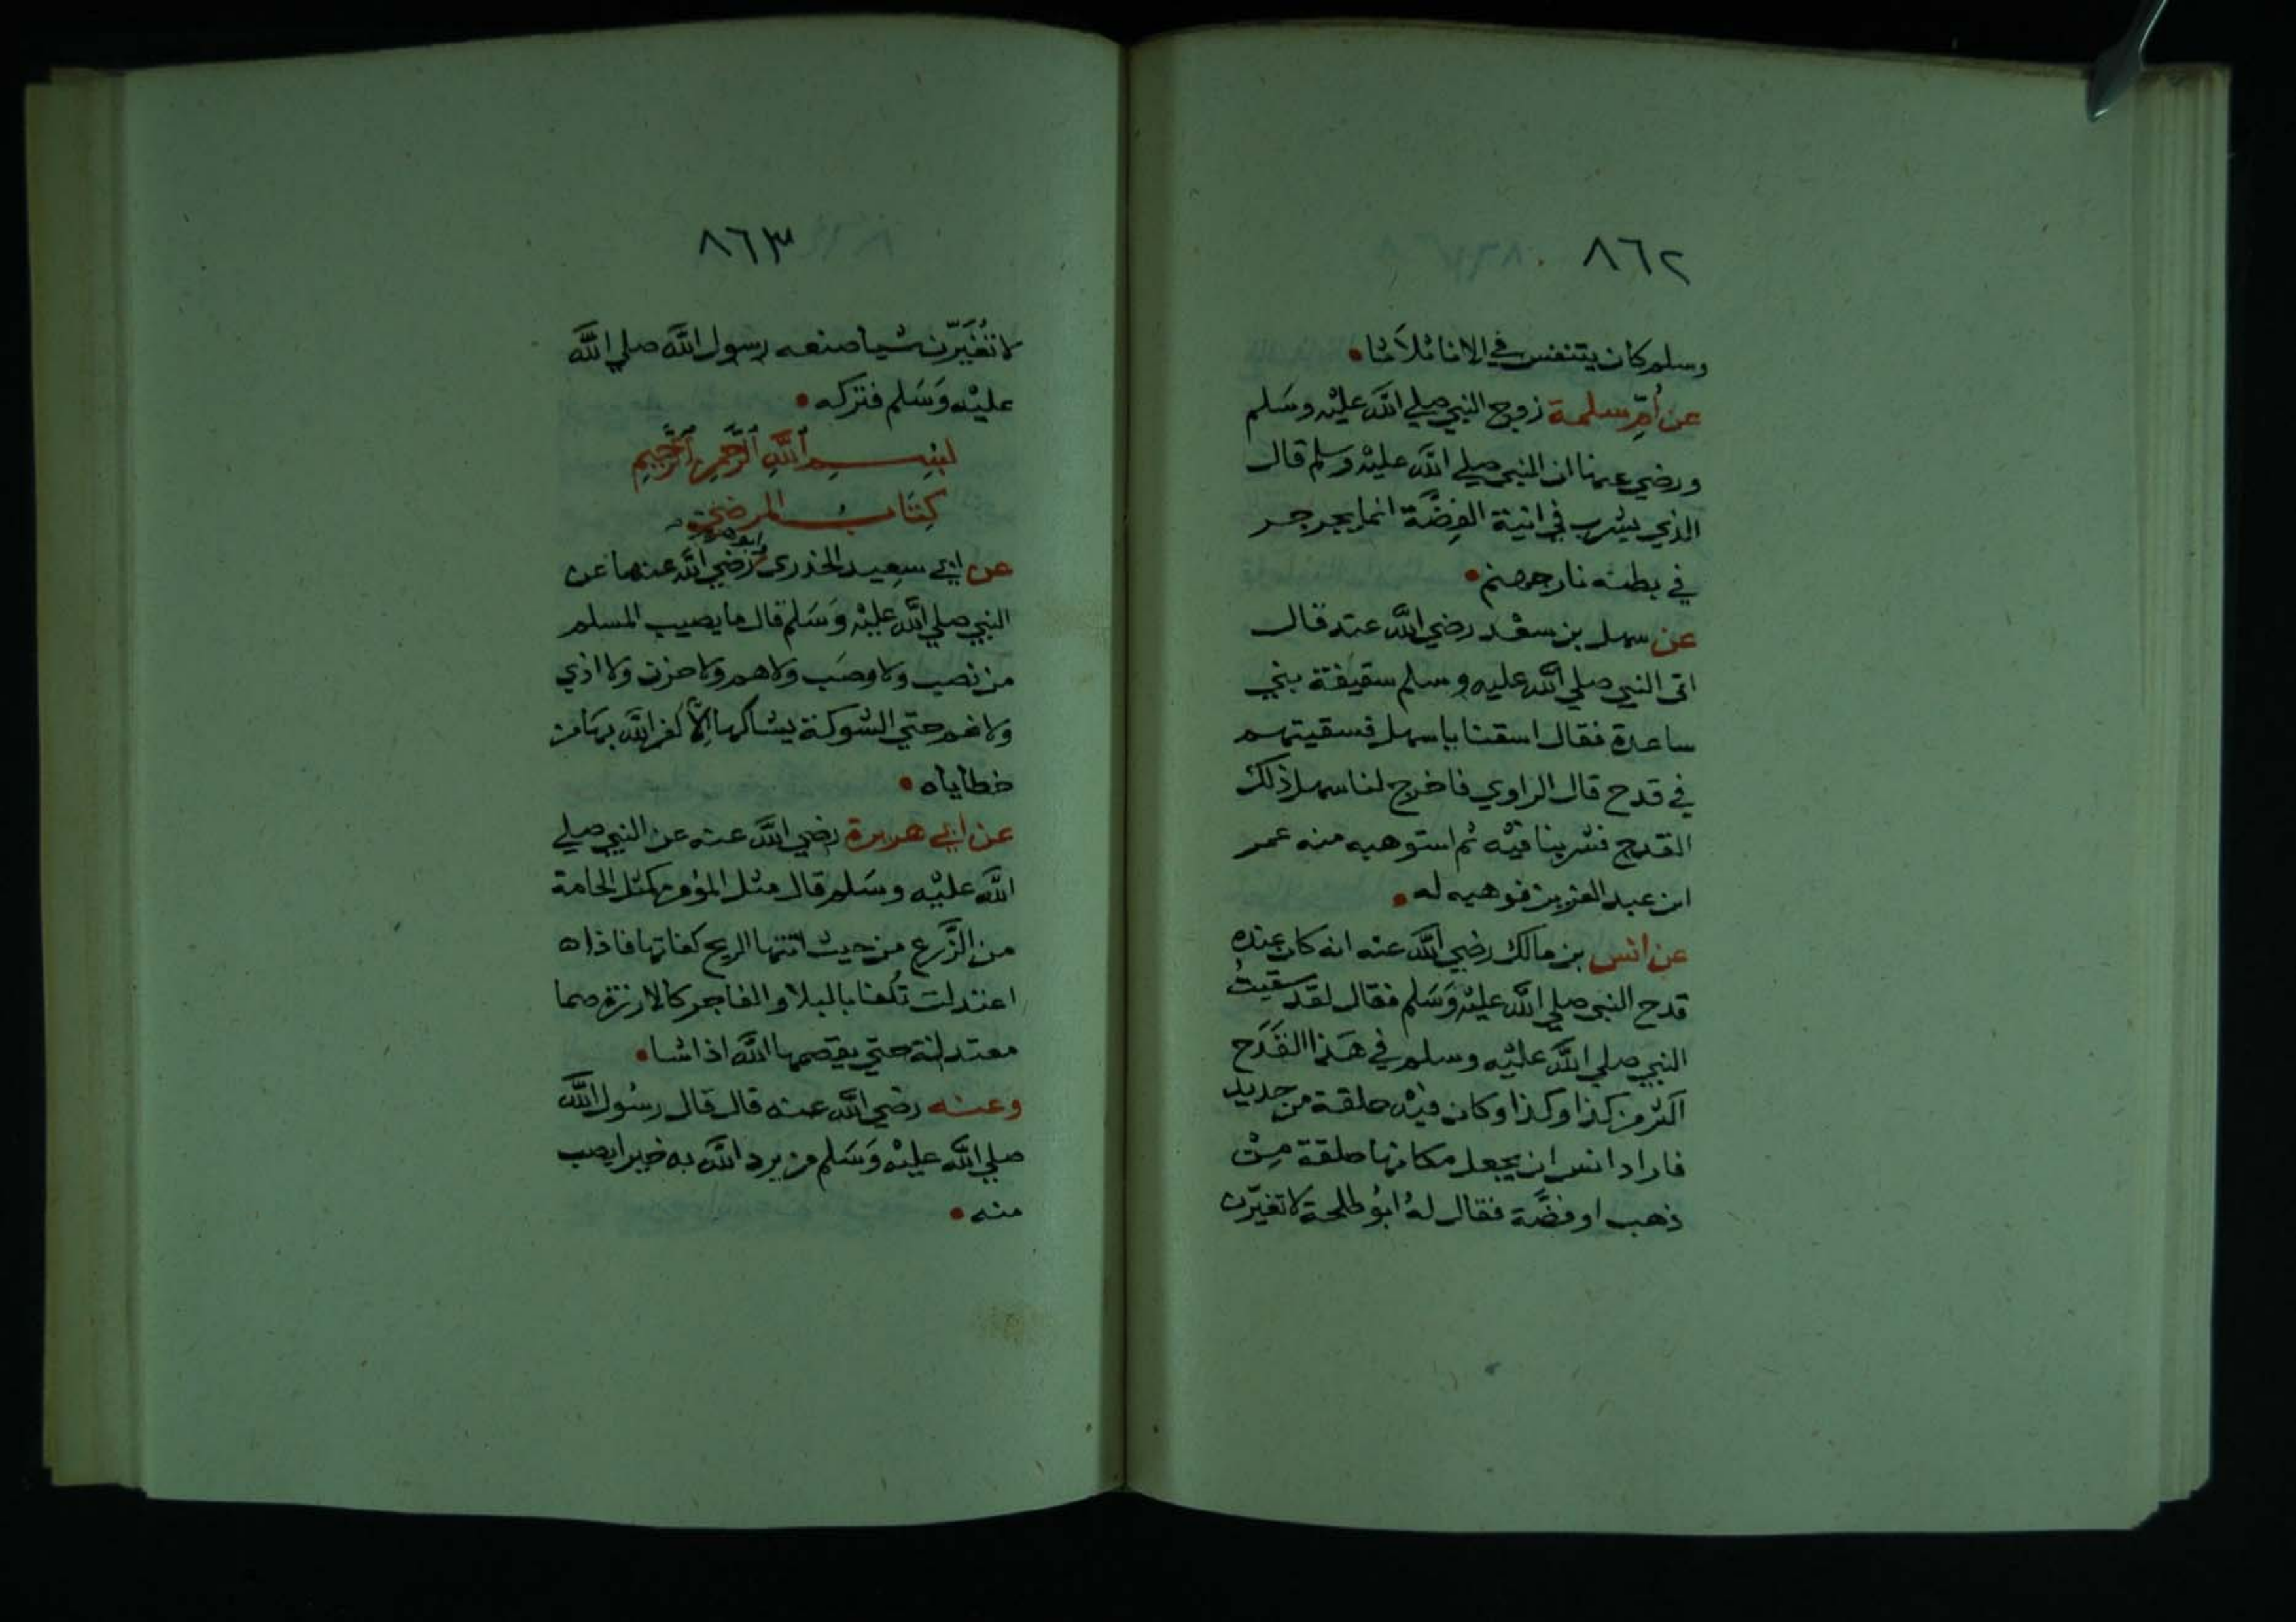 ٨٦٢
وسلم كان يتنفس في الانا ثلاثا
عن أم سلمة زوج النبي صلي الله عليه وسلم
ورضي عنها ان النبي صلي الله عليه وسلم قال
الذي يشرب في انية الفضة انما يجرجر
في بطنه نار جهنم
عن سهل بن سعد رضي الله عنه قال
اتى النبي صلي الله عليه وسلم سقيفة بني
ساعدة فقال اسقنا يا سهل فسقيتهم
في قدح قال الراوي فاخرج لنا سهل ذلك
القدح فشربنا فيه ثم استوهبه منه عمر
ابن عبد العزيز فوهبه له
عن انس بن مالك رضي الله عنه انه كان عنده
قدح النبي صلي الله عليه وسلم فقال لقد سقيت
النبي صلي الله عليه وسلم في هذا القدح
اكثر من كذا وكذا وكان فيه حلقة من حديد
فاراد انس ان يجعل مكانها حلقة من
ذهب او فضة فقال له ابو طلحة لا تغيرن
٨٦٣
لا تغيرن شيا صنعه رسول الله صلي الله
عليه وسلم فتركه
بسم الله الرحمن الرحيم
كتاب المرضى
عن ابي سعيد الخدري وابو هريرة رضي الله عنهما عن
النبي صلي الله عليه وسلم قال ما يصيب المسلم
من نصب ولا وصب ولا هم ولا حزن ولا اذي
ولا غم حتي الشوكة يشاكها إلا كفر الله بها من
خطاياه
عن ابي هريرة رضي الله عنه عن النبي صلي
الله عليه وسلم قال مثل المؤمن كمثل الخامة
من الزرع من حيث اتتها الريح كفاتها فاذا
اعتدلت تكفا بالبلا والفاجر كالارزة صما
معتدلة حتي يقصمها الله اذا شا
وعنه رضي الله عنه قال قال رسول الله
صلي الله عليه وسلم من يرد الله به خيرا يصب
منه